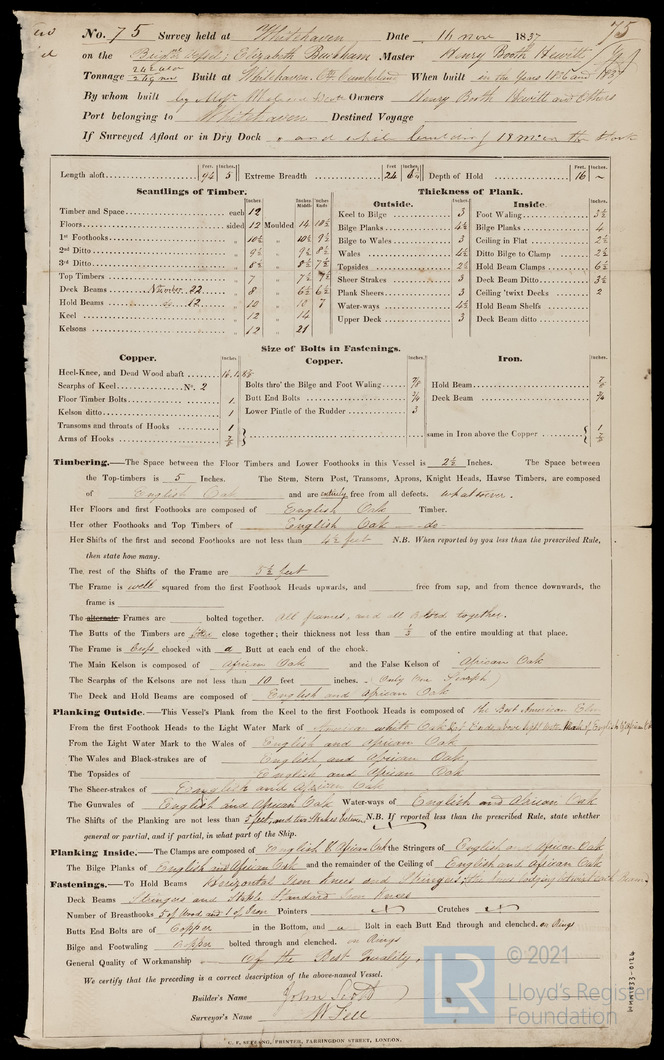 No. 75 Survey held at Whitehaven Date 16 Nov 1837 75
on the Brigtn Vessel; Elizabeth Buckham Master Henry Booth Hewitt
Tonnage Built at Whitehaven, Cumberland When built in the Years 1836 and 1837
By whom built by Owners Henry Booth Hewitt and Others
Port belonging to Whitehaven Destined Voyage
If Surveyed Afloat or in Dry Dock and while building
Length aloft 94 5 Extreme Breadth 24 6½ Depth of Hold 16 ~
Scantlings of Timber. Thickness of Plank.
Outside. Inside.
Timber and Space each 12 Keel to Bilge 3 Foot Waling 3½
Floors sided 12 Moulded 14 10½ Bilge Planks 4½ Bilge Planks 4
1st Foothooks 10½ 10½ 9½ Bilge to Wales 3 Ceiling in Flat 2½
2nd Ditto 9½ 9½ 8½ Wales 4½ Ditto Bilge to Clamp 2½
3rd Ditto 8½ 8½ 7½ Topsides 2½ Hold Beam Clamps 6½
Top Timbers 7 7½ Sheer Strakes 3 Deck Beam Ditto 3½
Deck Beams Number 22 8 6½ 6½ Plank Sheers 3 Ceiling 'twixt Decks 2
Hold Beams 12 10 12 7 Water-ways 4½ Hold Beam Shelfs
Keel 12 14 Upper Deck 3 Deck Beam ditto
Kelsons 12 21
Size of Bolts in Fastenings.
Copper. Copper. Iron.
Heel-Knee, and Dead Wood abaft
Scarphs of Keel No. 2 Bolts thro' the Bilge and Foot Waling 7/8 Hold Beam 7/8
Floor Timber Bolts 1 Butt End Bolts ¾ Deck Beam ¾
Kelson ditto 1 Lower Pintle of the Rudder 3
Transoms and throats of Hooks 1
Arms of Hooks 7/8 same in Iron above the Copper
Timbering.—The Space between the Floor Timbers and Lower Foothooks in this Vessel is 2½ Inches. The Space between
the Top-timbers is 5 Inches. The Stem, Stern Post, Transoms, Aprons, Knight Heads, Hawse Timbers, are composed
of English Oak and are entirely free from all defects. whatsoever.
Her Floors and first Foothooks are composed of English Oak Timber.
Her other Foothooks and Top Timbers of English Oak do
Her Shifts of the first and second Foothooks are not less than 4½ feet N.B. When reported by you less than the prescribed Rule,
then state how many.
The rest of the Shifts of the Frame are 5½ feet
The Frame is well squared from the first Foothook Heads upwards, and free from sap, and from thence downwards, the
frame is
The alternate Frames are bolted together. All frames, and all bolted together.
The Butts of the Timbers are close together; their thickness not less than ⅓ of the entire moulding at that place.
The Frame is chocked with a Butt at each end of the chock.
The Main Kelson is composed of African Oak and the False Kelson of African Oak
The Scarphs of the Kelsons are not less than 10 feet inches. (Only One Scarph)
The Deck and Hold Beams are composed of English and African Oak
Planking Outside.—This Vessel's Plank from the Keel to the first Foothook Heads is composed of the Best American Elm
From the first Foothook Heads to the Light Water Mark of American white Oak
From the Light Water Mark to the Wales of English and African Oak
The Wales and Black-strakes are of English and African Oak
The Topsides of English and African Oak
The Sheer-strakes of English and African Oak
The Gunwales of English and African Oak Water-ways of English and African Oak
The Shifts of the Planking are not less than 5 feet, and two Strakes between N.B. If reported less than the prescribed Rule, state whether
general or partial, and if partial, in what part of the Ship.
Planking Inside.—The Clamps are composed of English & African Oak the Stringers of English and African Oak
The Bilge Planks of English and African Oak and the remainder of the Ceiling of English and African Oak
Fastenings.—To Hold Beams Horizontal Iron Knees and Stringers,
Deck Beams Stringers and Staple Standard Iron Knees
Number of Breasthooks 5 of Wood and 1 of Iron Pointers Crutches
Butts End Bolts are of Copper in the Bottom, and a Bolt in each Butt End through and clenched. on Rings
Bilge and Footwaling Copper bolted through and clenched. on Rings
General Quality of Workmanship of the Best Quality.
We certify that the preceding is a correct description of the above-named Vessel.
Builder's Name John Scott
Surveyor's Name W Fell
C. F. SEYFANG, PRINTER, FARRINGDON STREET, LONDON.
LR © 2021
Lloyd's Register
Foundation